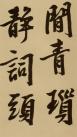 瑣頭
青詞
閒靜